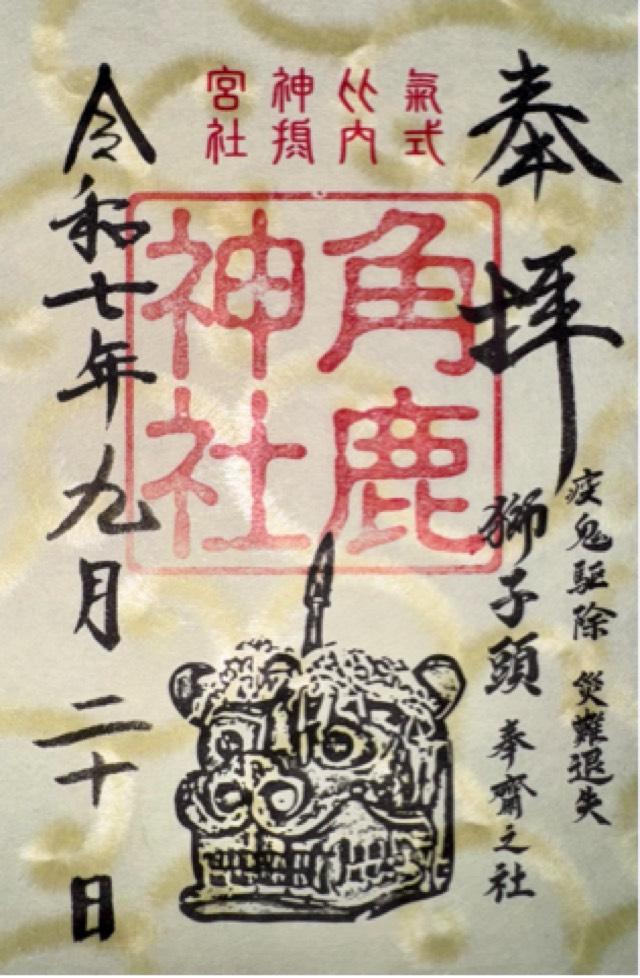 奉拝
疫鬼驅除 災難退失
獅子頭 奉齋之社
氣比神宮
式内摂社
角鹿
神社
令和七年九月二十日